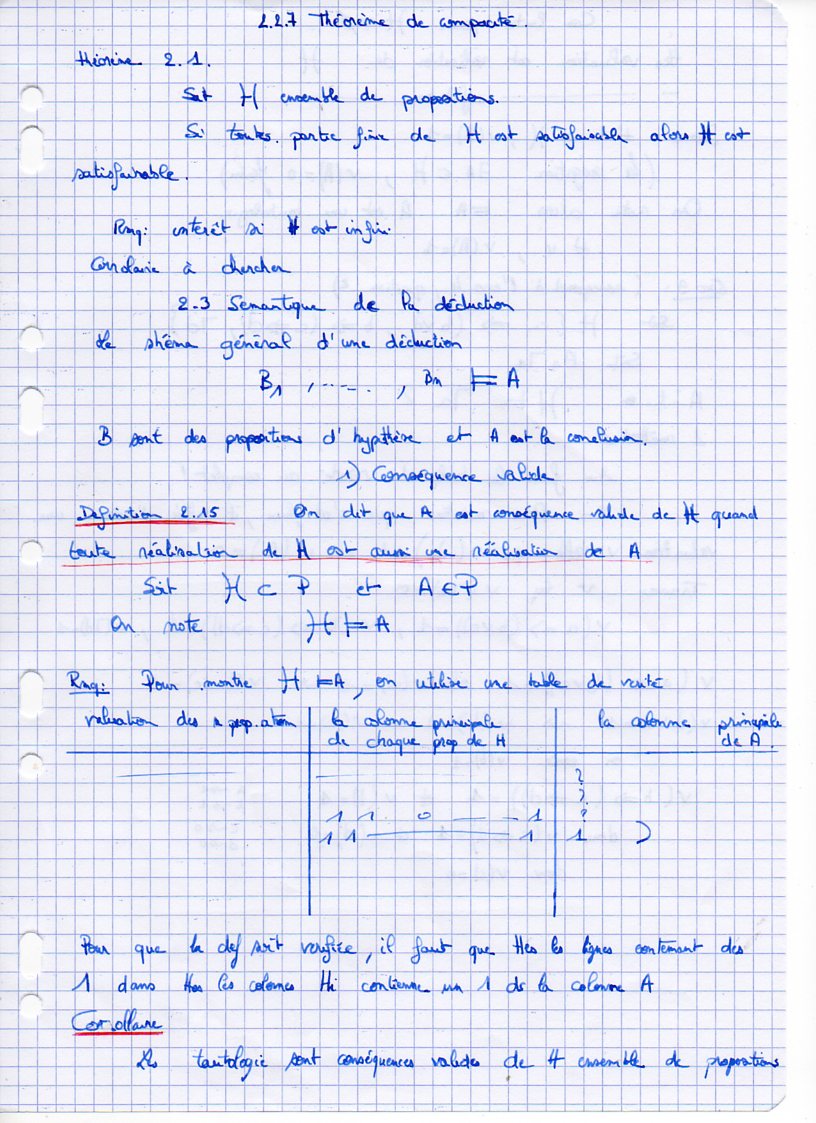 2.2.7 Théorème de compacité.
théorème 2.1.
Soit H ensemble de propositions.
Si toutes partie finie de H est satisfaisable alors H est
satisfaisable.
Rmq: intérêt si H est infini.
Corrolaire à chercher
2.3 Sémantique de la déduction
Le shéma général d'une déduction
B1 , ..... , Bn ⊨ A
B sont des propositions d'hypthèse et A est la conclusion.
1) Conséquence valide
Définition 2.15 On dit que A est conséquence valide de H quand
toute réalisation de H est aussi une réalisation de A
Soit H ⊂ P et A ∈ P
On note H ⊨ A
Rmq: Pour montre H ⊨ A, on utilise une table de verité
valuation des n prop. atom la colonne principale la colonne principale
de chaque prop de H de A.
?
?
1 1 0 — — 1 ?
1 1 ——— 1 1
Pour que la def soit verifiée, il faut que ttes les lignes contenant des
1 dans ttes les colonnes Hi contienne un 1 ds la colonne A
Corollaire
Les tautologie sont conséquences valides de H ensemble de propositions